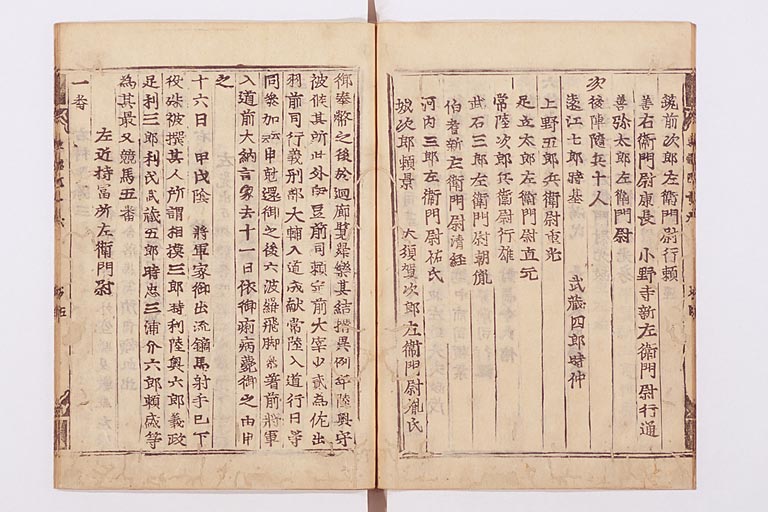 筑前次郎左衛門尉行頼
善右衛門尉康長　小野寺新左衛門尉行通
善弥太郎左衛門尉
次後陣随兵十人
遠江七郎時基　武蔵四郎時仲
上野五郎兵衛尉重光
足立太郎左衛門尉直元
常陸次郎兵衛尉行雄
武石三郎左衛門尉朝胤
伯耆新左衛門尉清経
河内三郎左衛門尉祐氏
城次郎頼景　大須賀次郎左衛門尉胤氏
御奉幣之後於廻廊覧舞樂其結搆異例年陸奥守
被候其所此外伊豆前司頼定前大宰少貳為佐出
羽前司行義刑部大輔入道成献常陸入道行日等
同参加云云申剋還御之後六波羅飛脚参著前将軍
入道前大納言家去十一日依御痢病薨御之由申
之
十六日　甲戌陰　将軍家御出流鏑馬射手已下
役殊被撰其人所謂相摸三郎時利陸奥六郎義政
足利三郎利氏武蔵五郎時忠三浦介六郎頼盛等
為其最又競馬五番
一番
左近持冨所左衛門尉